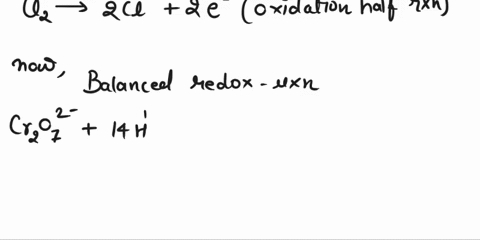 Cl₂ → 2Cl + 2e⁻ (oxidation half rxn)
now,
Balanced redox - rxn
Cr₂O₇²⁻ + 14 H⁺